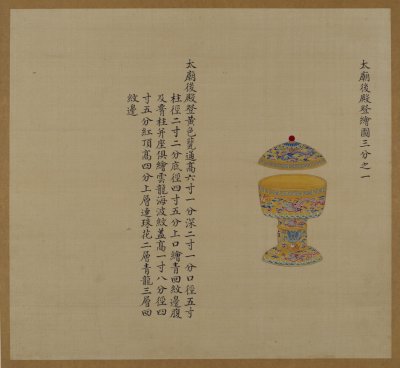 太廟後殿登繪圖三分之一
太廟後殿登黃色甆通高六寸一分深二寸一分口徑五寸
柱徑二寸二分底徑四寸五分上口繪青回紋邊腹
及青柱并座俱繪雲龍海波紋蓋高一寸八分徑四
寸五分紅頂高四分上層連珠花二層青龍三層回
紋邊